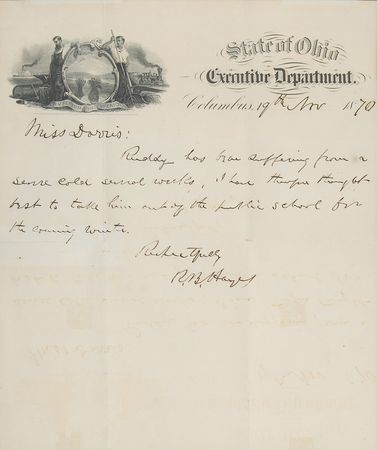 State of Ohio
Executive Department.
Columbus, 19th Nov 1870
Miss Dorris:
Ruddy has been suffering from a
severe cold several weeks, I have therefore thought
best to take him out of the public school for
the coming winter.
Respectfully
R.B. Hayes